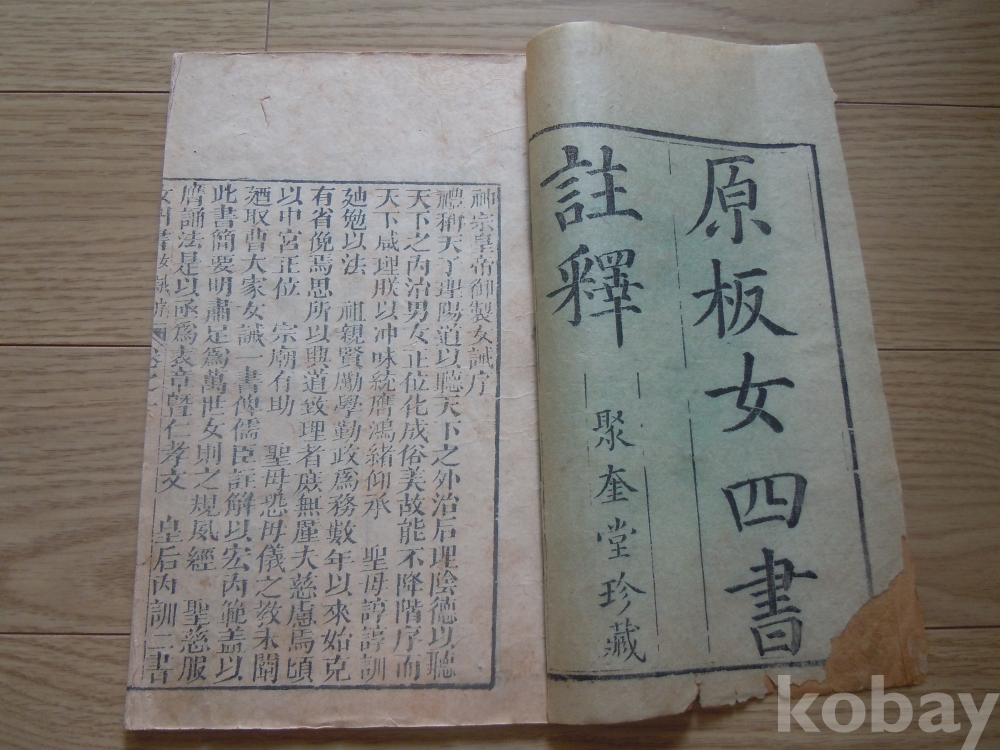 原板女四書
註釋
聚奎堂珍藏
神宗皇帝御製女誡序
禮稱天子理陽道以聽天下之外治后理陰德以聽
天下之內治男女正位化成俗美故能不降階序而
天下咸理朕以冲味統膺鴻緒仰承　聖母諄諄訓
廸勉以法　祖親賢勵學勤政爲務數年以來始克
有省俛焉思所以興道致理者庶無厪大慈慮焉頃
以中宮正位　宗廟有助　聖母恐母儀之教未闡
廼取曹大家女誡一書俾儒臣註解以宏內範盖以
此書簡要明肅足爲萬世女則之規風經　聖慈服
膺誦法是以亟爲表章曁仁孝文　皇后內訓二書
女四書女誡序
kobay